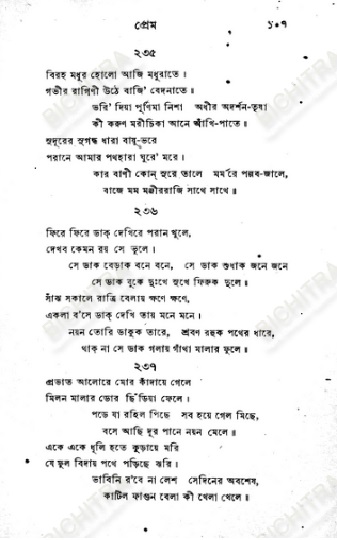 প্রেম ১০৭
২৩৫
বিরহ মধুর হোলো আজি মধুরাতে॥
গভীর রাগিণী উঠে বাজি' বেদনাতে॥
ভরি' দিয়া পূর্ণিমা নিশা অধীর অদর্শন-তৃষা
কী করুণ মরীচিকা আনে আঁখি-পাতে॥
সুদূরের সুগন্ধ ধারা বায়ু-ভরে
পরানে আমার পথহারা ঘুরে' মরে।
কার বাণী কোন্ সুরে তালে মর্মরে পল্লব-জালে,
বাজে মম মঞ্জীররাজি সাথে সাথে॥
২৩৬
ফিরে ফিরে ডাক্ দেখিরে পরান খুলে,
দেখব কেমন রয় সে ভুলে।
সে ডাক বেড়াক বনে বনে, সে ডাক শুধাক জনে জনে
সে ডাক বুকে দুঃখে সুখে ফিরুক দুলে॥
সাঁঝ সকালে রাত্রি বেলায় ক্ষণে ক্ষণে,
একলা ব'সে ডাক্ দেখি তায় মনে মনে।
নয়ন তোরি ডাকুক তারে, শ্রবণ রহুক পথের ধারে,
থাক্ না সে ডাক গলায় গাঁথা মালার ফুলে॥
২৩৭
প্রভাত আলোরে মোর কাঁদায়ে গেলে
মিলন মালার ডোর ছিঁড়িয়া ফেলে।
পড়ে যা রহিল পিছে সব হয়ে গেল মিছে,
বসে আছি দূর পানে নয়ন মেলে॥
একে একে ধূলি হতে কুড়ায়ে মরি
যে ফুল বিদায় পথে পড়িছে ঝরি।
ভাবিনি র'বে না লেশ সেদিনের অবশেষ,
কাটিল ফাগুন বেলা কী খেলা খেলে॥
BICHITRA